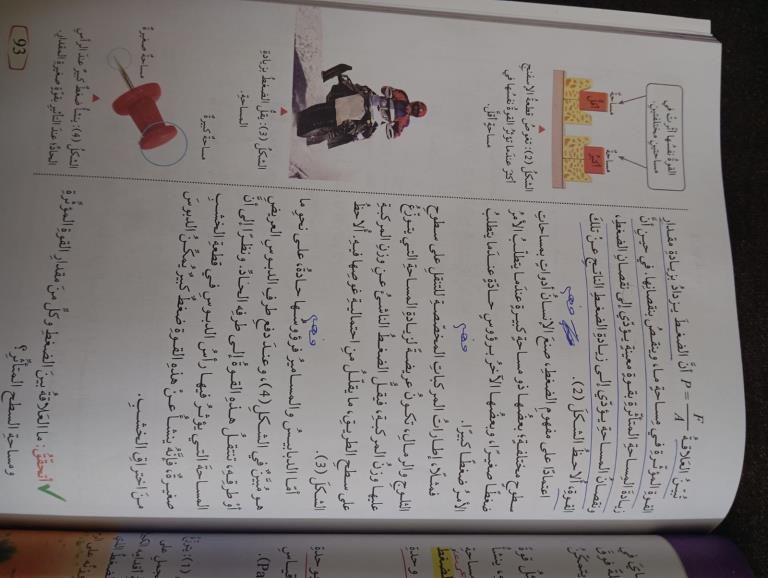 تُبيّنُ العلاقةُ P = F/A أنَّ الضغطَ يزدادُ بزيادة مقدارِ
القوة المؤثرة في مساحةٍ ما، وينقصُ بنقصِها. في حينِ أنَّ
زيادةَ المساحةِ المتأثّرة بقوة معينةٍ يؤدّي إلى نقصانِ الضغطِ،
ونقصانُ المساحة يؤدي إلى زيادةِ الضغطِ الناتجِ عنْ تلكَ
القوة، ألاحظُ الشكلَ (2).
اعتمادًا على مفهومِ الضغطِ، صنعَ الإنسانُ أدواتٍ بمساحاتِ
سطوحٍ مختلفةٍ؛ بعضُها ذو مساحةٍ كبيرة عندَما يتطلبُ الأمرُ
ضغطًا صغيرًا، وبعضُها الآخرُ برؤوسٍ حادّة عندَما يتطلبُ
الأمرُ ضغطًا كبيرًا.
مهم
فمثلًا، إطاراتُ المركباتِ المخصّصةِ للتنقلِ على سطوحِ
الثلوجِ والرمالِ، تكونُ عريضةً لزيادةِ المساحةِ التي يتوزّعُ
عليها وزنُ المركبةِ، فيقلُّ الضغطُ الناشئُ عنْ وزنِ المركبةِ
على سطحِ الطريقِ، ما يقلّلُ منِ احتماليةِ غوصِها فيهِ. ألاحظُ
الشكلَ (3).
أمّا الدبابيسُ والمساميرُ فرؤوسُها حادّة، على نحوِ ما
مهم
هوَ مبيّنٌ في الشكلِ (4)، وعندَ دفعِ طرفِ الدبوسِ العريضِ
أوْ طرقِهِ، تنتقلُ هذهِ القوةُ إلى طرفِهِ الحادِّ. ونظرًا إلى أنَّ
المساحةَ التي يؤثرُ فيها رأسُ الدبوسِ في قطعةِ الخشبِ
صغيرةٌ، فإنَّهُ ينشأُ عنْ هذهِ القوة ضغطٌ كبيرٌ يمكّنُ الدبوسَ
منَ اختراقِ الخشبِ.
✓ أتحققُ: ما العَلاقةُ بينَ الضغطِ وكلٍّ منْ مقدارِ القوة المؤثّرة
ومساحةِ السطحِ المتأثّرِ؟
القوةُ نفسُها أثّرتْ في
مساحتينِ مختلفتينِ.
مساحةٌ
أقلُّ
مساحةٌ
أكبرُ
الشكلُ (2): تغوصُ قطعةُ الإسفنجِ
أكثرَ عندَما تؤثرُ القوةُ نفسُها في
مساحةٍ أقلَّ.
الشكلُ (3): يقلُّ الضغطُ بزيادةِ
المساحةِ.
مساحةٌ كبيرةٌ
مساحةٌ صغيرةٌ
الشكلُ (4): ينشأُ ضغطٌ كبيرٌ عندَ الرأسِ
الحادِّ عندَ التأثيرِ بقوة صغيرة المقدارِ.
93